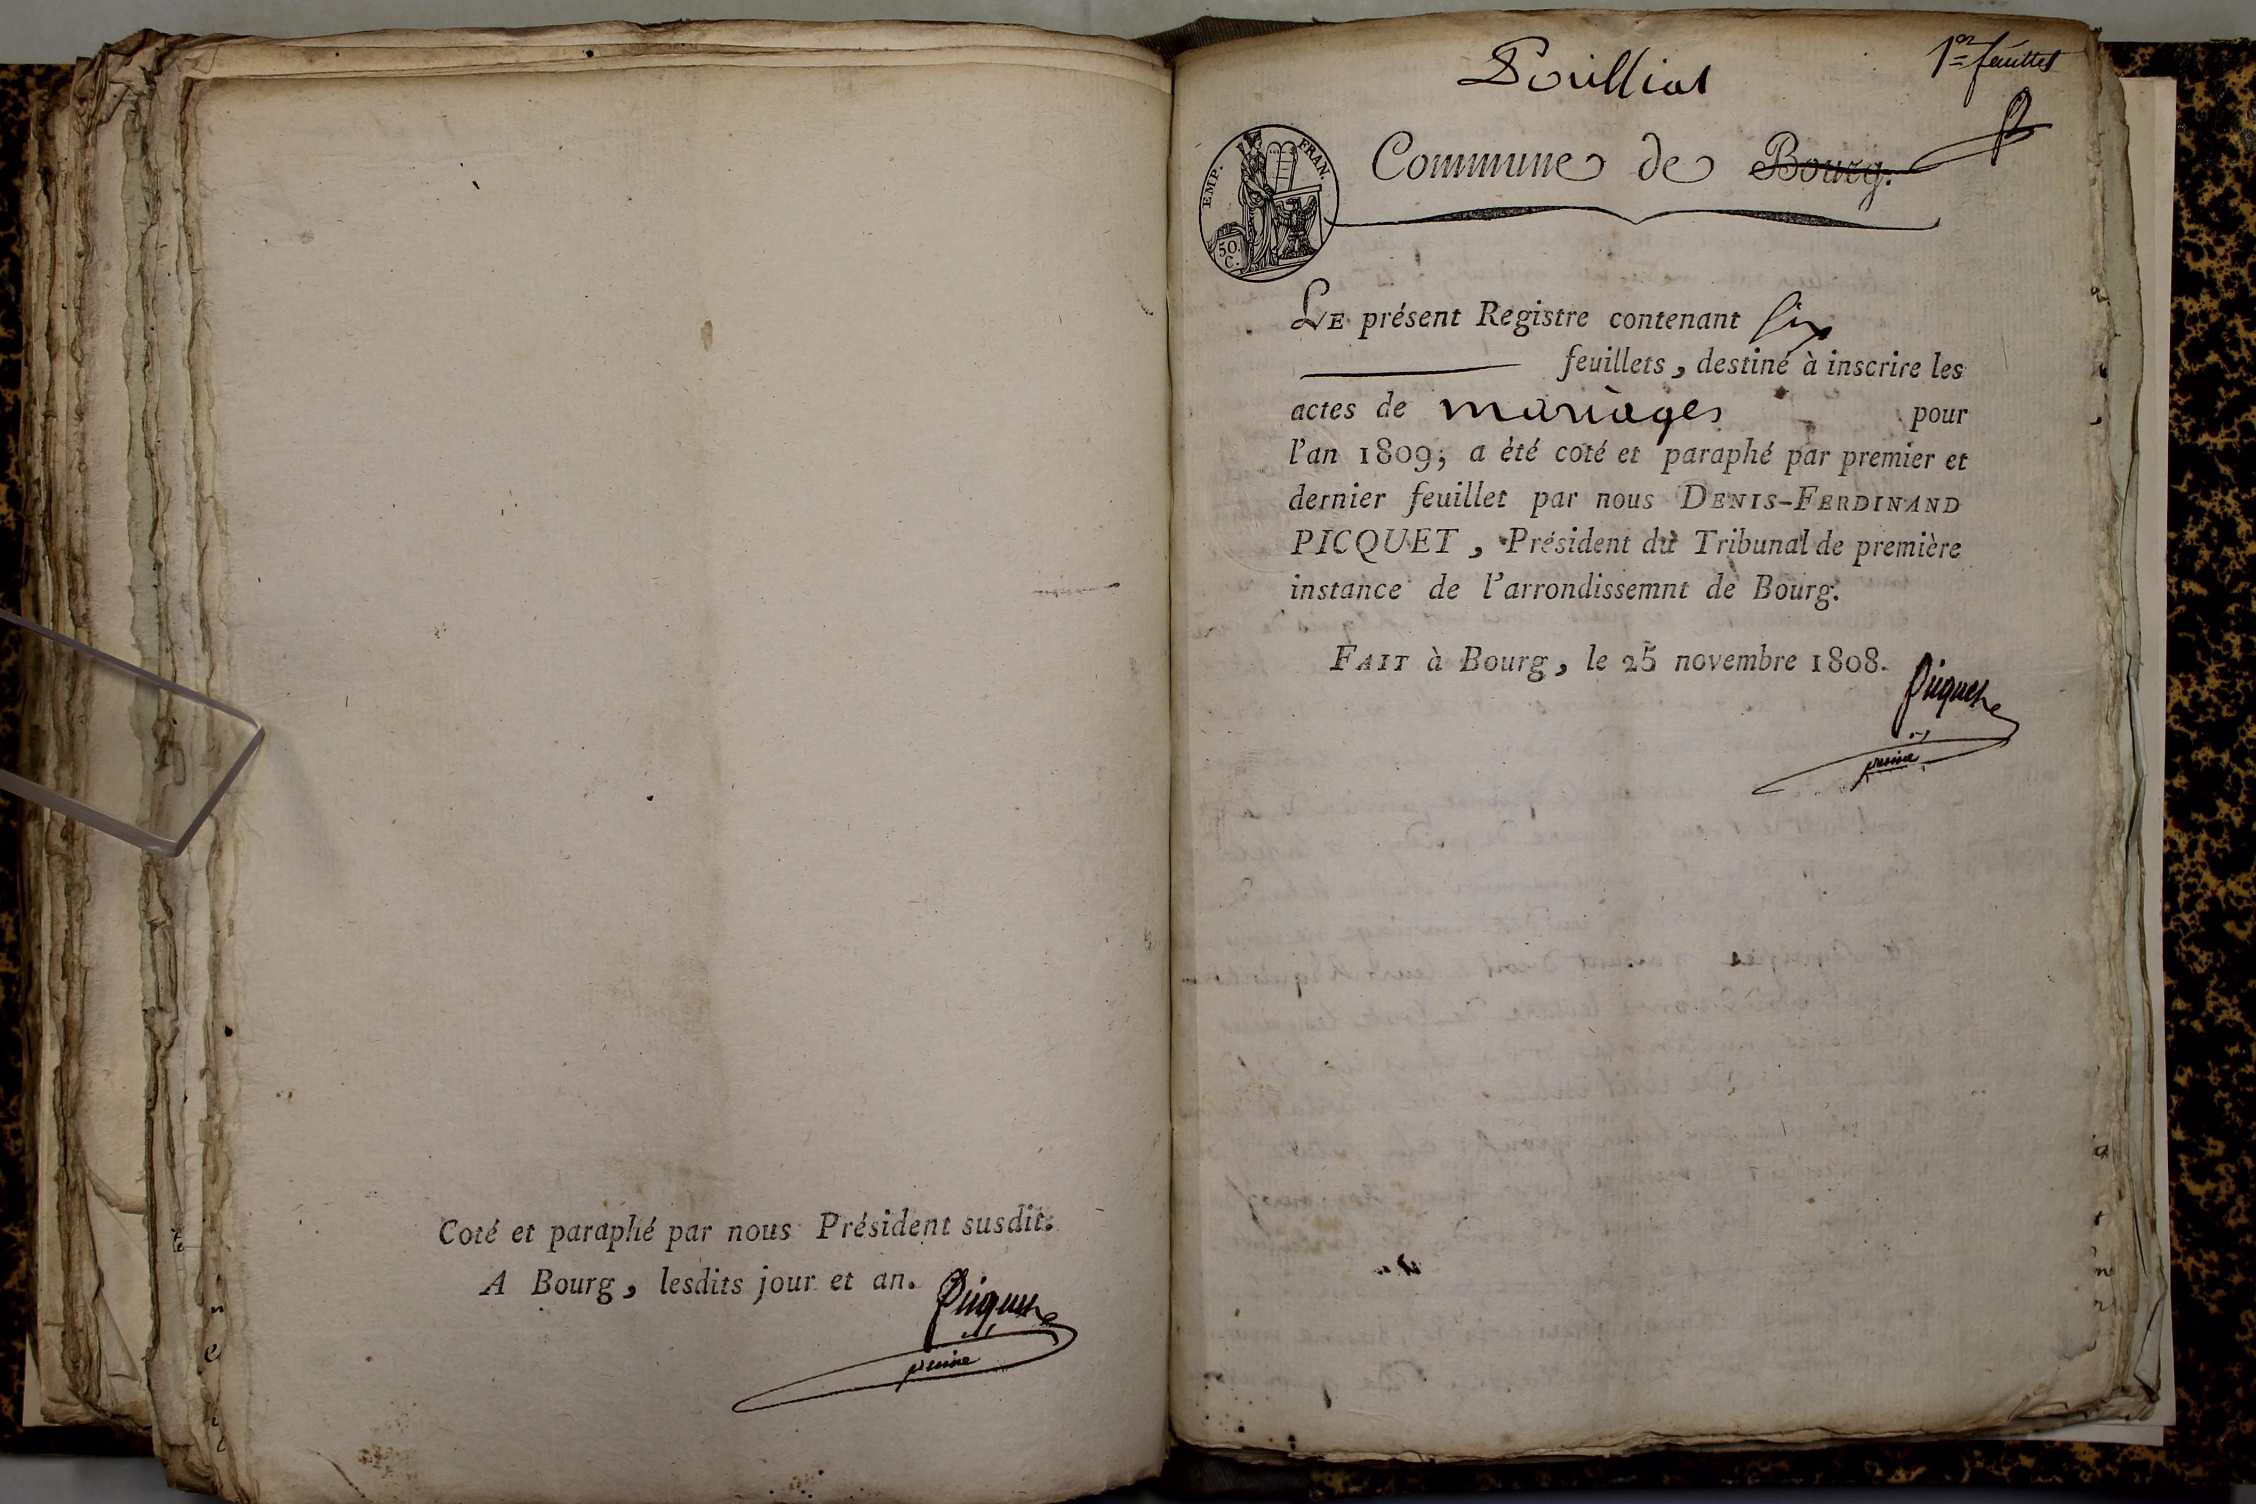 Coté et paraphé par nous Président susdit.
A Bourg, lesdits jour et an.
Picquet
1er feuillet
Pouilliat
EMP. FRAN.
50. C.
Commune de Bourg.
LE présent Registre contenant six
feuillets, destiné à inscrire les
actes de mariages pour
l'an 1809, a été coté et paraphé par premier et
dernier feuillet par nous DENIS-FERDINAND
PICQUET, Président du Tribunal de première
instance de l'arrondissemnt de Bourg.
FAIT à Bourg, le 25 novembre 1808.
Picquet